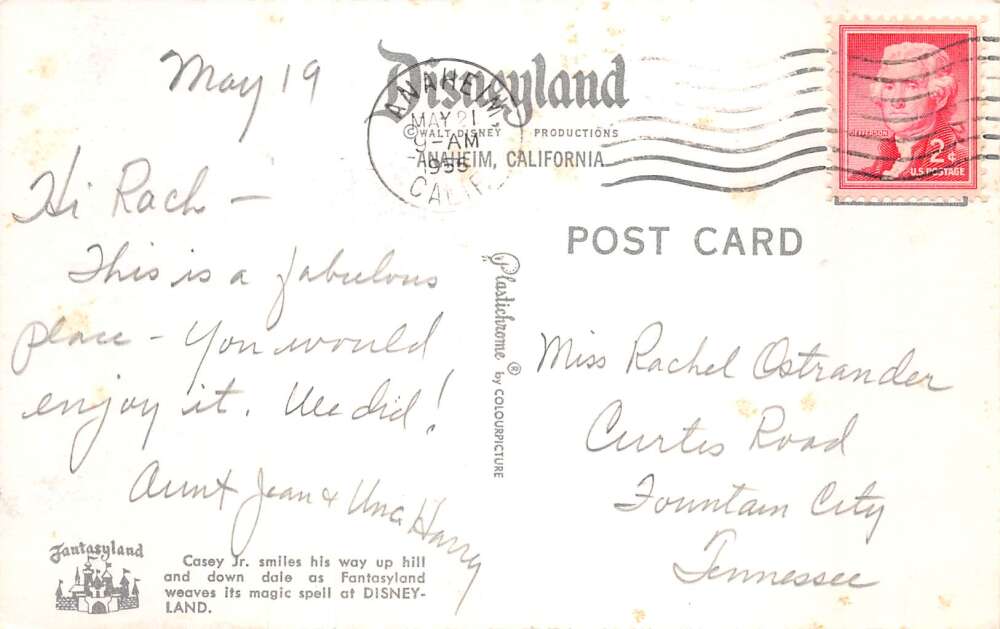 May 19
Hi Rach -
This is a fabulous
place - You would
enjoy it. We did!
Aunt Jean & Unc. Harry
Fantasyland
Casey Jr. smiles his way up hill
and down dale as Fantasyland
weaves its magic spell at DISNEY-
LAND.
Disneyland
© WALT DISNEY PRODUCTIONS
ANAHEIM, CALIFORNIA
ANAHEIM,
MAY 21
9-AM
CALIF.
JEFFERSON
2¢
U.S. POSTAGE
POST CARD
Plastichrome ® by COLOURPICTURE
Miss Rachel Ostrander
Curtis Road
Fountain City
Tennessee